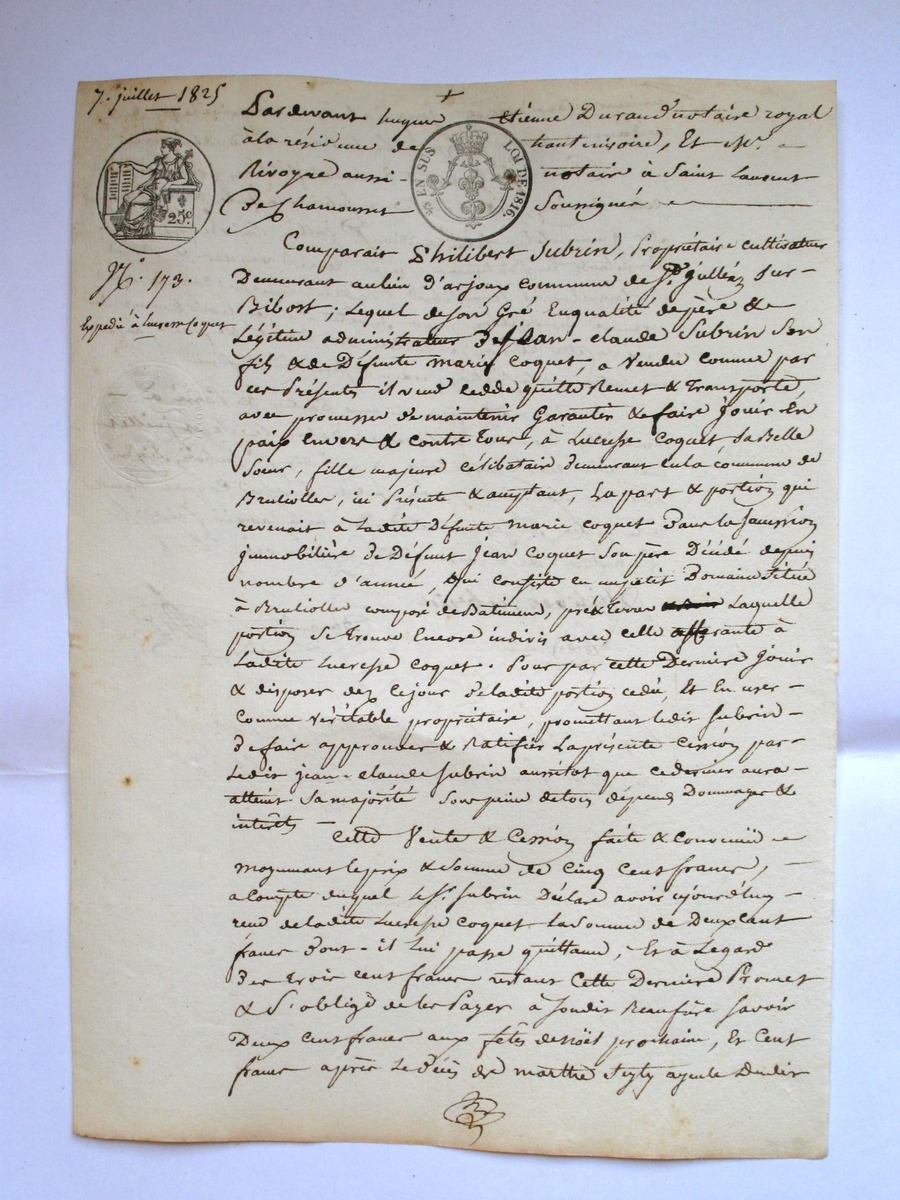 7. juillet 1825
25c
N.° 173.
Expédié à Lucresse Coquet
EN SUS LOI DE 1816.
Pardevant hugues etienne Durand notaire royal
à la résidence de hauterivoire, Et Me.
Rivoyre aussi notaire à Saint Laurent
De Chamousset Soussignés
Comparait Philibert Subrin, Propriétaire cultivateur
Demeurant au lieu d'arjoux commune de St. Jullien Sur
Bibost; Lequel de son Gré En qualité de père &
Légitime administrateur De jean-claude Subrin Son
fils & de Défunte marie Coquet, a Vendu comme par
ces Présentes il vend cedde quitte Remet & Transporte
avec promesse De maintenir Garantir & faire jouir En
paix Envers & contre tous, à Lucresse Coquet Sa Belle
Soeur, fille majeure célibataire demeurant en la commune de
Brulioles, ici Présente & acceptant, La part & portion qui
revenait à Ladite Défunte marie Coquet Dans la Succession
jmmobilière de Défunt Jean Coquet Son père Décédé depuis
nombre d'année, Qui consiste en un petit Domaine Situé
à Brulioles composé de Batiments, prés & Terres Laquelle
portion Se trouve Encore indivis avec celle afferante à
Ladite Lucresse Coquet. Pour par cette Derniere jouir
& disposer dez ce jour De ladite portion cedée, Et En user
comme Véritable propriétaire, promettant ledit Subrin
De faire approuver & Ratifier La présente Cession par
Ledit jean-claude Subrin aussitot que ce dernier aura
atteint Sa majorité Sous peine de tous dépens Dommages &
interêts
Cette Vente & Cession faite & convenue
moyennant le prix & Somme de Cinq Cent francs,
a Compte duquel le Sr. Subrin Déclare avoir cejourd'huy
reçu de ladite Lucresse Coquet La Somme de Deux Cent
francs dont il lui passe quittance, Et à Legard
Des trois cent francs restant Cette Derniere Promet
& S'oblige de les Payer à Sondit Beaufrère Savoir
Deux Cent francs aux fêtes de Noël prochaine, Et Cent
francs après Le décès de marthe ayeule Dudit